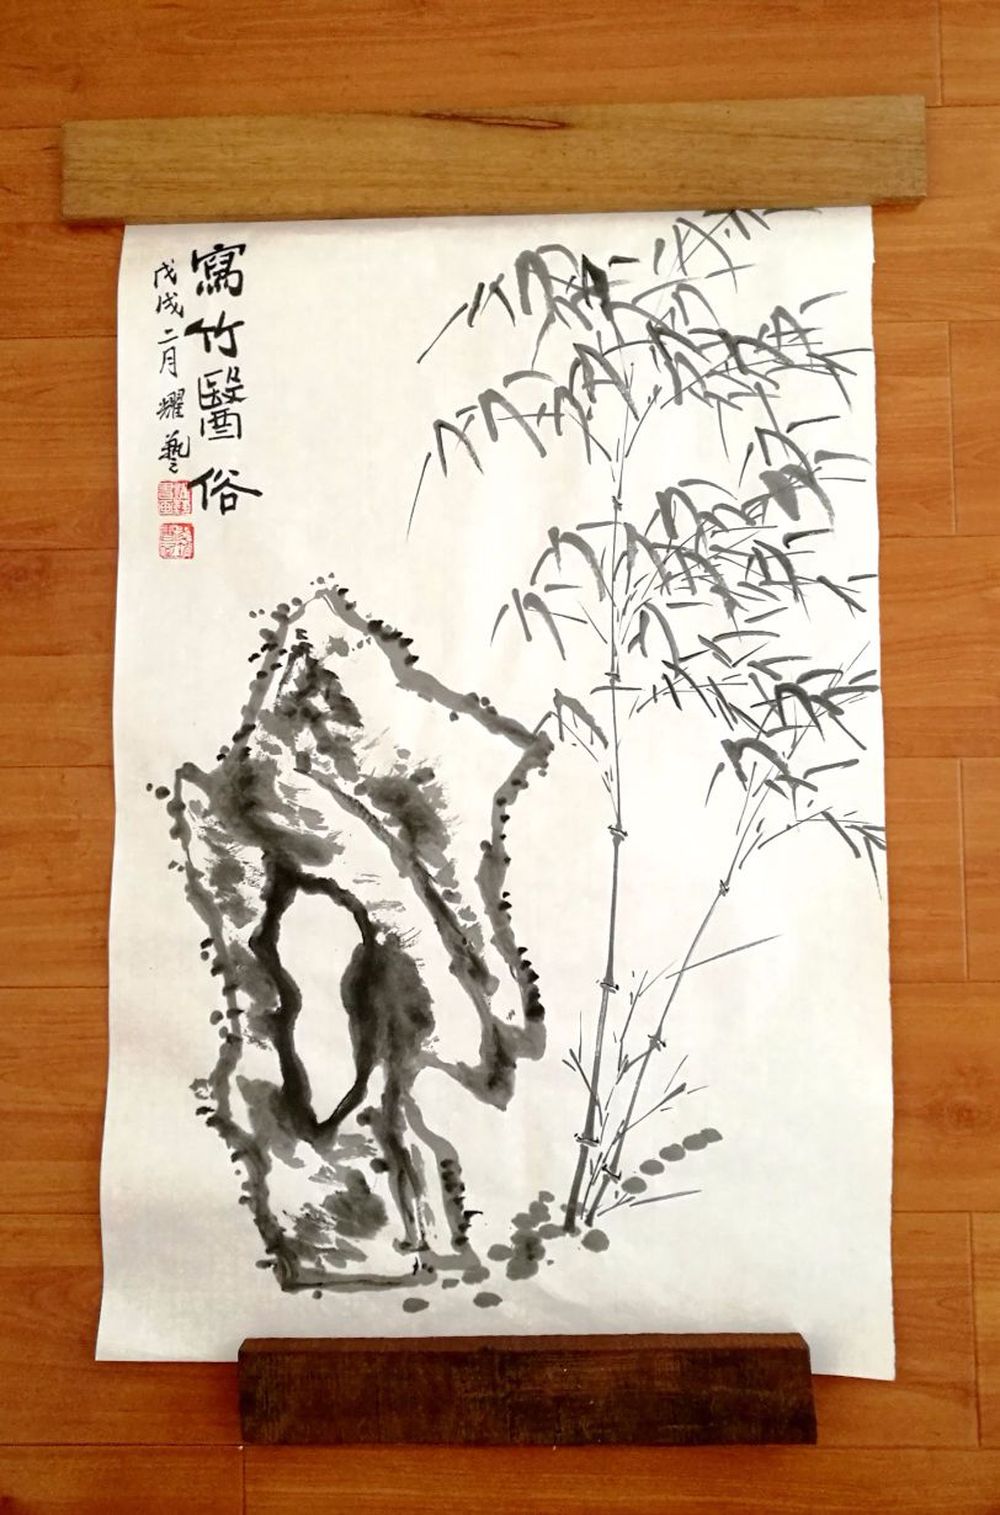 寫竹醫俗
戊戌二月耀藝